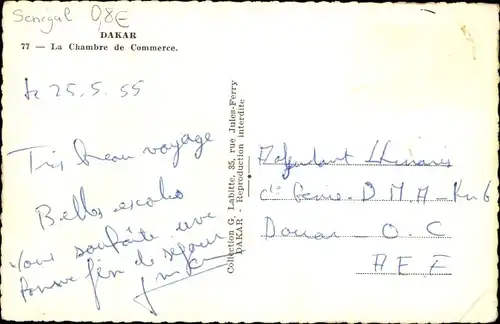 Senegal 0,8€
DAKAR
77 — La Chambre de Commerce.
le 25.5.55
Très beau voyage
Belles escales
Vous souhaite une
bonne fin de séjour
Collection G. Labitte, 35, rue Jules-Ferry
DAKAR - Reproduction interdite
Cie Génie - D M A -
Douar - O.C
A E F